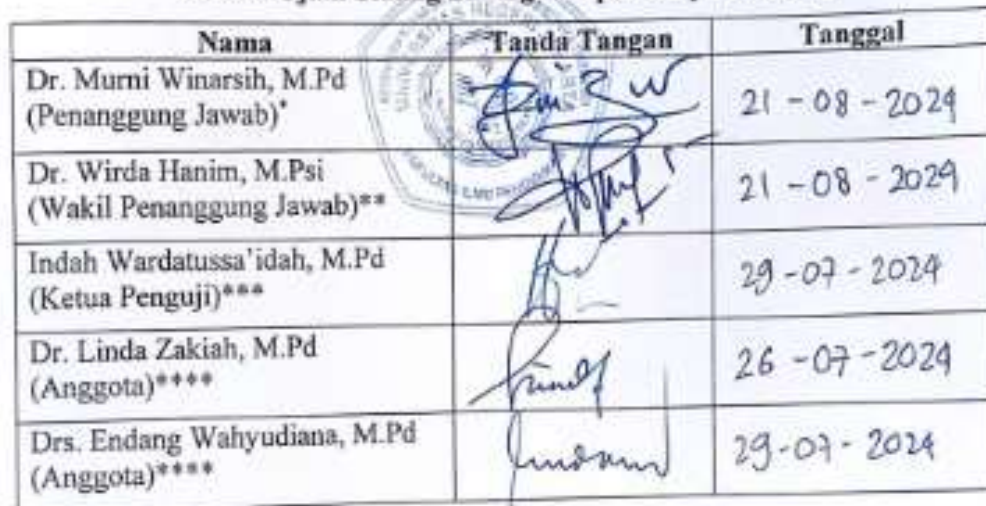 Nama Tanda Tangan Tanggal
Dr. Murni Winarsih, M.Pd
(Penanggung Jawab)* 21 - 08 - 2024
Dr. Wirda Hanim, M.Psi
(Wakil Penanggung Jawab)** 21 - 08 - 2024
Indah Wardatussa'idah, M.Pd
(Ketua Penguji)*** 29 - 07 - 2024
Dr. Linda Zakiah, M.Pd
(Anggota)**** 26 - 07 - 2024
Drs. Endang Wahyudiana, M.Pd
(Anggota)**** 29 - 07 - 2024